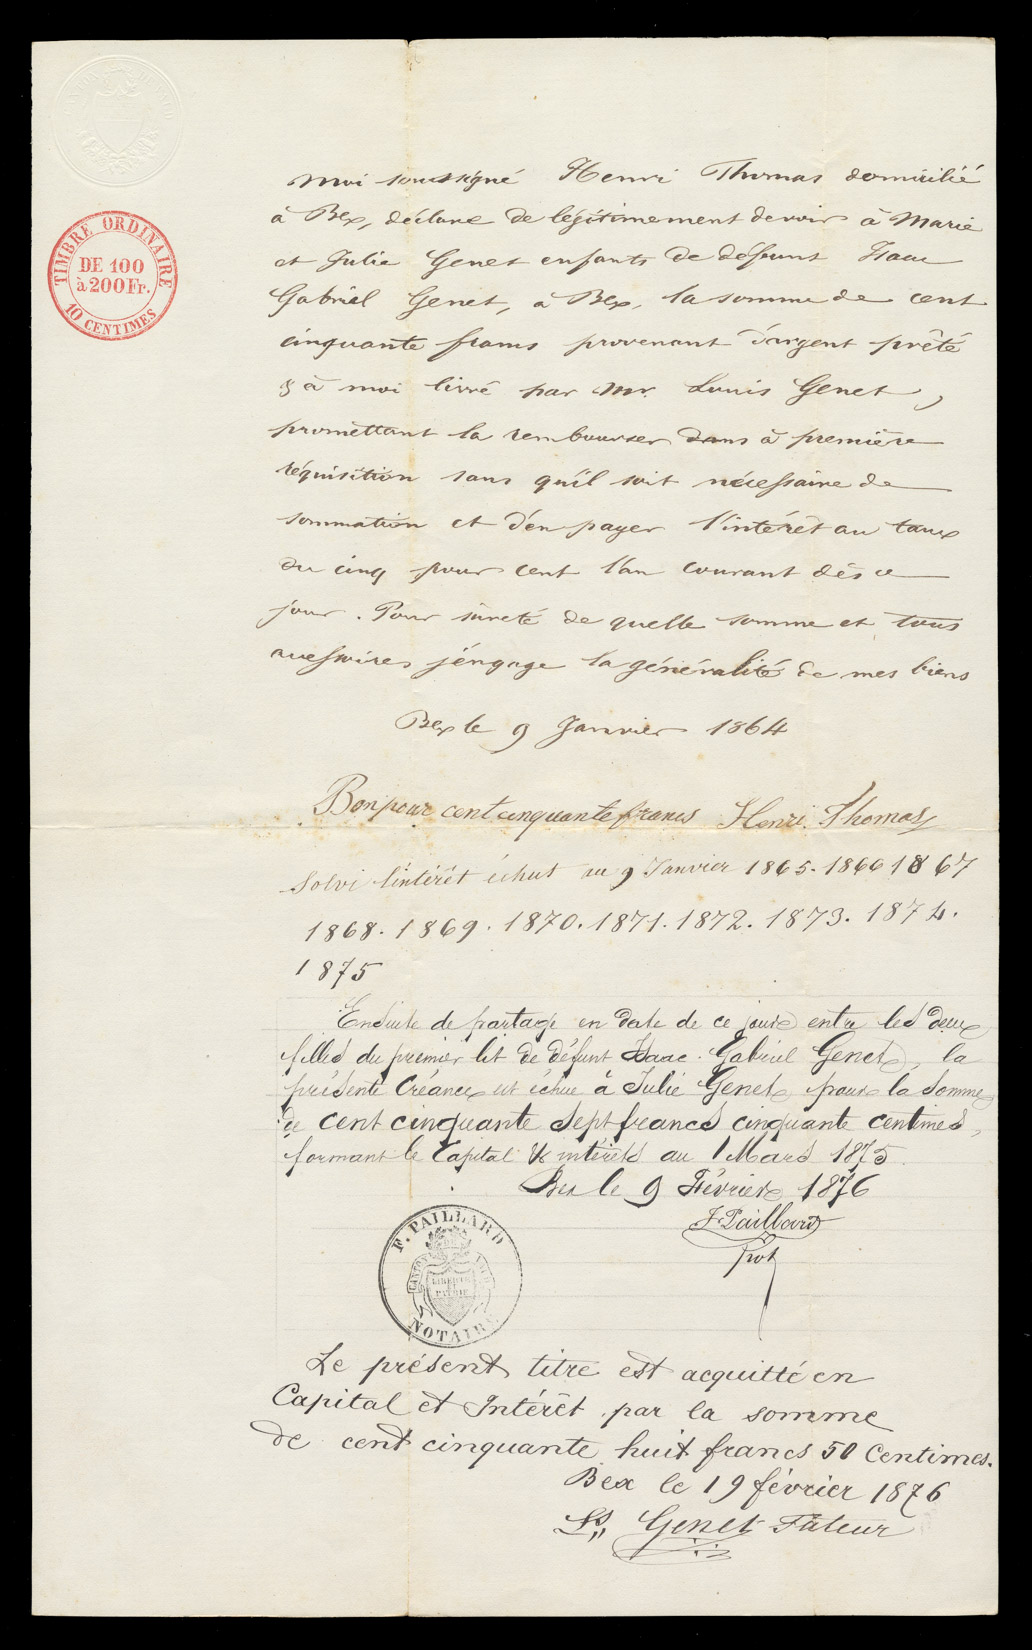 TIMBRE ORDINAIRE
DE 100
à 200 Fr.
10 CENTIMES
Moi soussigné Henri Thomas domicilié
à Bex, déclare de légitimement devoir à Marie
et Julie Genet enfants de défunt Isaac
Gabriel Genet, à Bex, la somme de cent
cinquante francs provenant d'argent prêté
& à moi livré par Mr. Louis Genet,
promettant la rembourser dans à première
réquisition sans qu'il soit nécessaire de
sommation et d'en payer l'intérêt au taux
du cinq pour cent l'an courant dès ce
jour. Pour sûreté de quelle somme et tous
accessoires j'engage la généralité de mes biens
Bex le 9 Janvier 1864
Bon pour cent cinquante francs Henri Thomas
Solvi l'intérêt échut au 9 Janvier 1865. 1866 1867
1868. 1869. 1870. 1871. 1872. 1873. 1874.
1875
Ensuite de partage en date de ce jour entre les deux
filles du premier lit de défunt Isaac Gabriel Genet, la
présente Créance est échue à Julie Genet pour la somme
de cent cinquante sept francs cinquante centimes,
formant le Capital & intérêts au 1 Mars 1875.
Bex le 9 Février 1876
F. Paillard
not
F. PAILLARD
CANTON DE VAUD
LIBERTÉ
ET
PATRIE
NOTAIRE
Le présent titre est acquitté en
Capital et Intérêt par la somme
de cent cinquante huit francs 50 Centimes.
Bex le 19 février 1876
Ls, Genet Tuteur